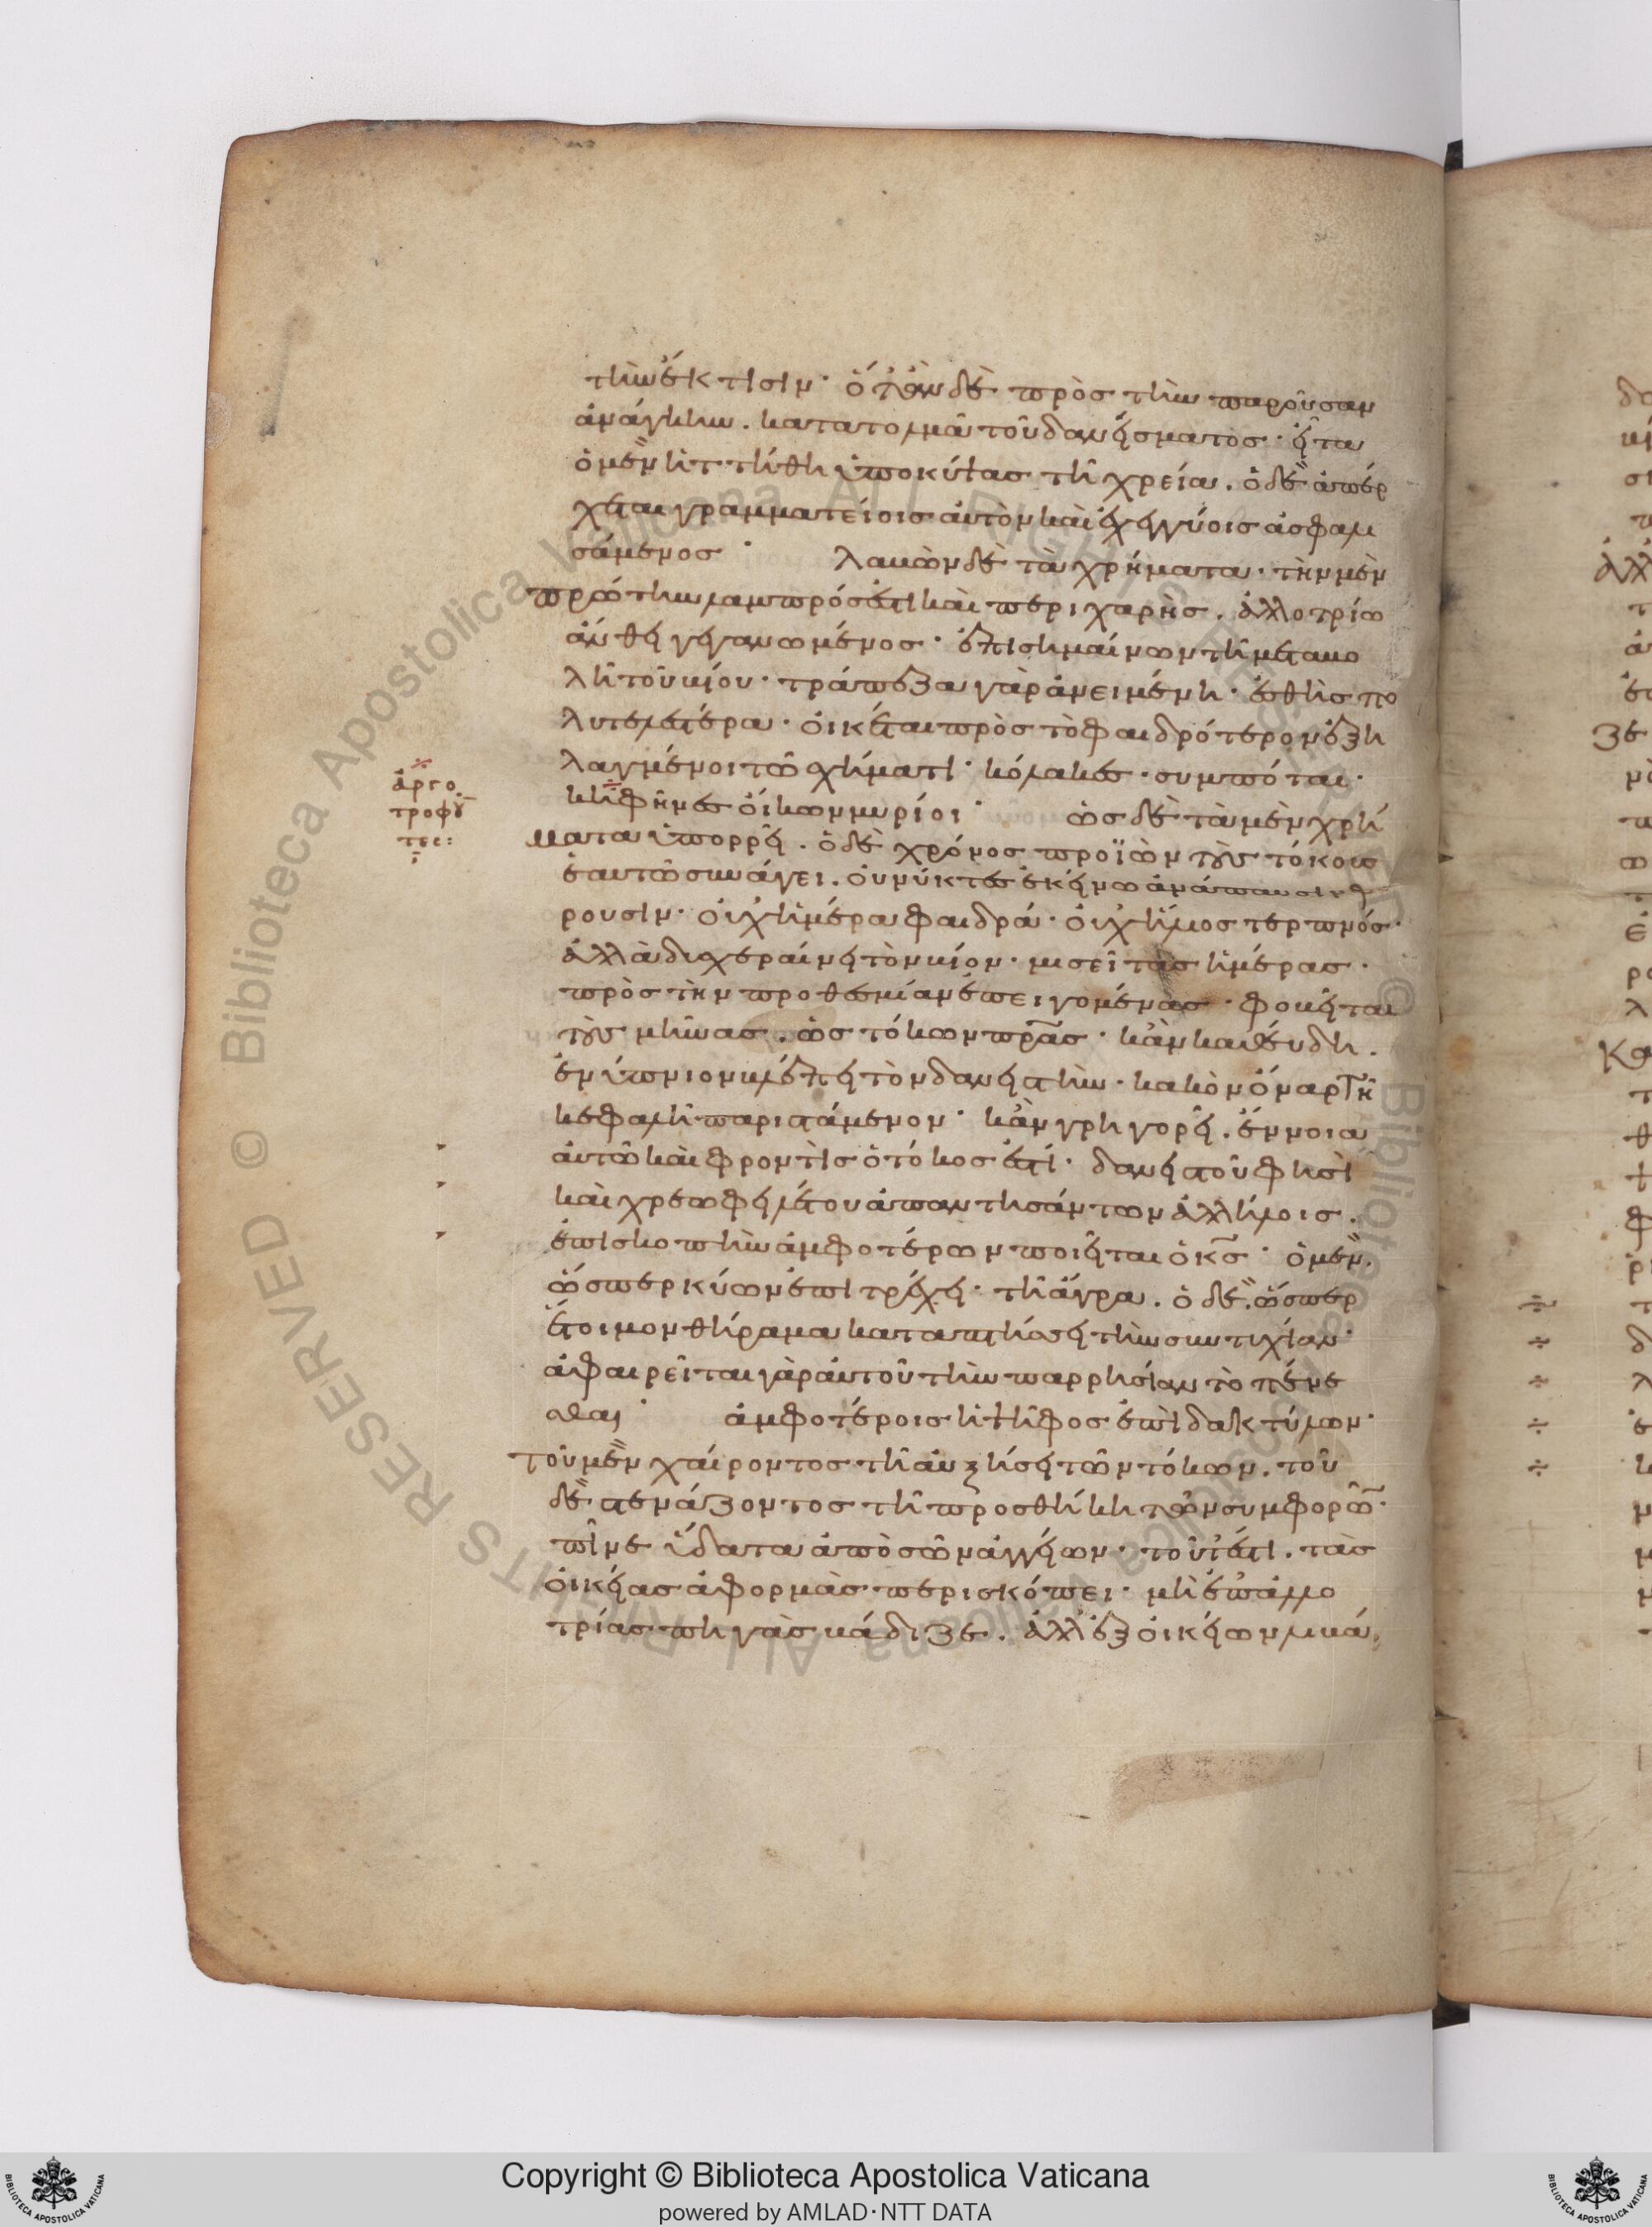 τὴν ἔκτισιν· ὅταν δὲ πρὸς τὴν παροῦσαν
ἀνάγκην. κατατολμᾶ τοῦ δανείσματος· εἶτα
ὁ μὲν ἡττήθη ὑποκύψας τῆ χρεία. ὁ δὲ ἀπέρ
χεται γραμματείοις αὐτὸν καὶ ἐχεγγύοις ἀσφαλι
σάμενος· λαβὼν δὲ τὰ χρήματα· τὴν μὲν
πρώτην λαμπρός ἐστι καὶ περιχαρὴς. ἀλλοτρίω
ἄνθει γεγανωμένος· ἐπισημαίνων τῆ μεταβο
λῆ τοῦ βίου· τράπεζα γὰρ ἀνειμένη· ἐσθὴς πο
λυτελεστέρα· οἰκέται πρὸς τὸ φαιδρότερον ἐξη
λαγμένοι τῶ σχήματι· κόλακες· συμπόται·
κηφῆνες οἴκων μυρίοι· ὡς δὲ τὰ μὲν χρή
ματα ὑπορρεῖ. ὁ δὲ χρόνος προϊὼν τοὺς τόκους
ἑαυτῶ συνάγει. οὐ νύκτες ἐκείνω ἀνάπαυσιν φέ
ρουσιν· οὐχ ἡμέρα φαιδρά· οὐχ ἥλιος τερπνός·
ἀλλὰ δυσχεραίνει τὸν βίον· μισεῖ τὰς ἡμέρας·
πρὸς τὴν προθεσμίαν ἐπειγομένας· φοβεῖται
τοὺς μῆνας. ὡς τόκων πρας· κἂν καθεύδη.
ἐνύπνιον βλέπει τὸν δανειστὴν· κακὸν ὄναρ τῆ
κεφαλῆ παριστάμενον· κἂν γρηγορεῖ. ἔννοια
αὐτῶ καὶ φροντὶς ὁ τόκος ἐστί· δανειστοῦ φησὶ
καὶ χρεωφειλέτου ἀπαντησάντων ἀλλήλοις.
ἐπισκοπὴν ἀμφοτέρων ποιεῖται ὁ κς· ὁ μὲν.
ὥσπερ κύων ἐπιτρέχει· τῆ ἄγρα. ὁ δὲ. ὥσπερ
ἕτοιμον θήραμα καταπτήσσει τὴν συντυχίαν·
ἀφαιρεῖται γὰρ αὐτοῦ τὴν παρρησίαν τὸ πένε
σθαι· ἀμφοτέροις ἡ ψῆφος ἐπὶ δακτύλων·
τοῦ μὲν χαίροντος τῆ αὐξήσει τῶν τόκων. τοῦ
δὲ στενάζοντος τῆ προσθήκη τῶν συμφορῶν·
πῖνε ὕδατα ἀπὸ σῶν ἀγγείων· τουτέστι. τὰς
οἰκείας ἀφορμὰς περισκόπει· μὴ ἐπ ἀλλο
τρίας πηγὰς βάδιζε. ἀλλ ἐξ οἰκείων λιβά
ἀργο
τροφου